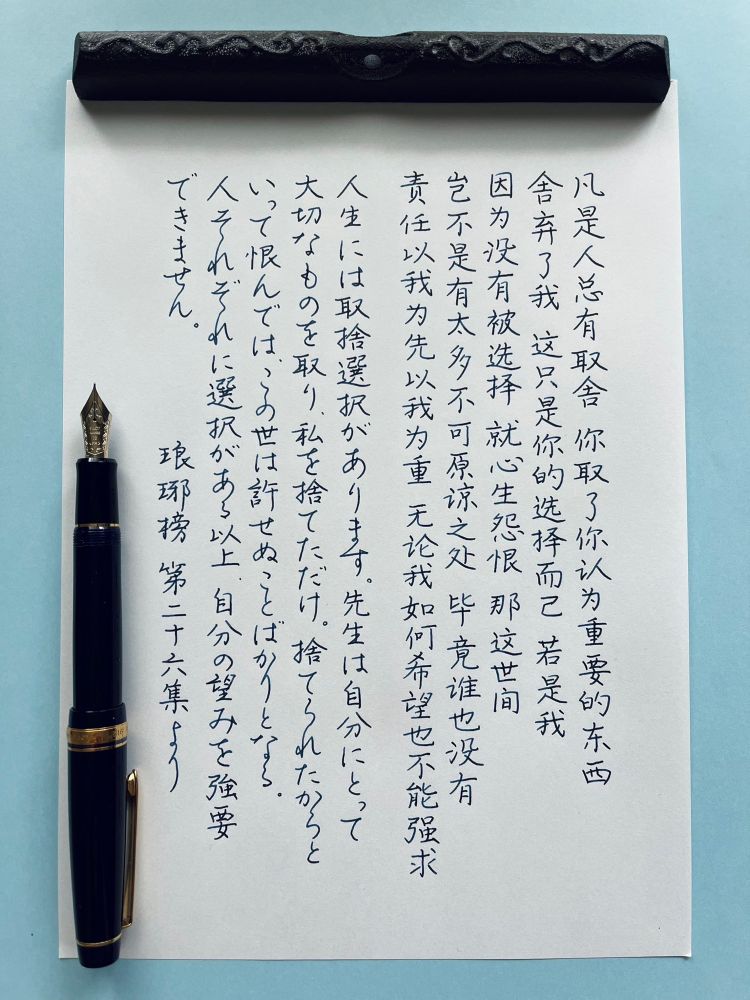 凡是人总有取舍 你取了你认为重要的东西
舍弃了我 这只是你的选择而已 若是我
因为没有被选择 就心生怨恨 那这世间
岂不是有太多不可原谅之处 毕竟谁也没有
责任以我为先以我为重 无论我如何希望也不能强求
人生には取捨選択があります。先生は自分にとって
大切なものを取り、私を捨てただけ。捨てられたからと
いって恨んでは、この世は許せぬことばかりとなる。
人それぞれに選択がある以上、自分の望みを強要
できません。
琅琊榜 第二十六集より